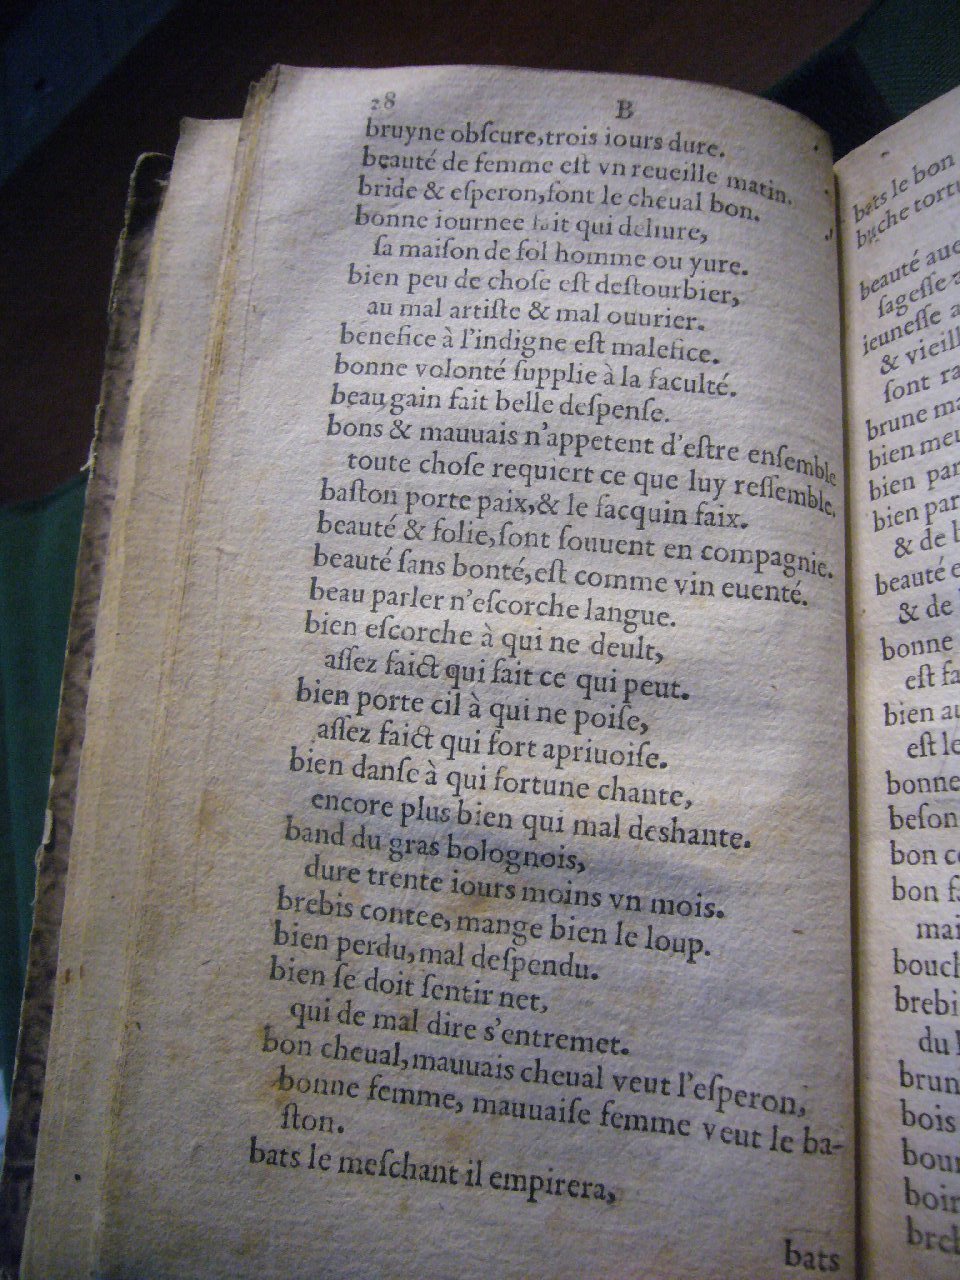 28 B
bruyne obſcure,trois iours dure.
beauté de femme eſt vn reueille matin.
bride & eſperon,font le cheual bon.
bonne iournee fait qui deliure,
ſa maiſon de fol homme ou yure.
bien peu de choſe eſt deſtourbier,
au mal artiſte & mal ouurier.
benefice à l'indigne eſt malefice.
bonne volonté ſupplie à la faculté.
beau gain fait belle deſpenſe.
bons & mauuais n'appetent d'eſtre enſemble
toute choſe requiert ce que luy reſſemble.
baſton porte paix,& le facquin faix.
beauté & folie,ſont ſouuent en compagnie.
beauté ſans bonté,eſt comme vin euenté.
beau parler n'eſcorche langue.
bien eſcorche à qui ne deult,
aſſez faict qui fait ce qui peut.
bien porte cil à qui ne poiſe,
aſſez faict qui fort apriuoiſe.
bien danſe à qui fortune chante,
encore plus bien qui mal deshante.
band du gras bolognois,
dure trente iours moins vn mois.
brebis contee, mange bien le loup.
bien perdu,mal deſpendu.
bien ſe doit ſentir net,
qui de mal dire s'entremet.
bon cheual,mauuais cheual veut l'eſperon,
bonne femme, mauuaiſe femme veut le ba-
ſton.
bats le meſchant il empirera,
bats
bats le bon
buche
beauté
ſageſſe
ieuneſſe a
& vieill
ſont ra
brune ma
bien meu
bien par
bien par
& de b
beauté e
& de
bonne
eſt fa
bien au
eſt le
bonne
beſon
bon co
bon fa
mai
bouch
brebi
du
brun
bois
bour
boir
breb